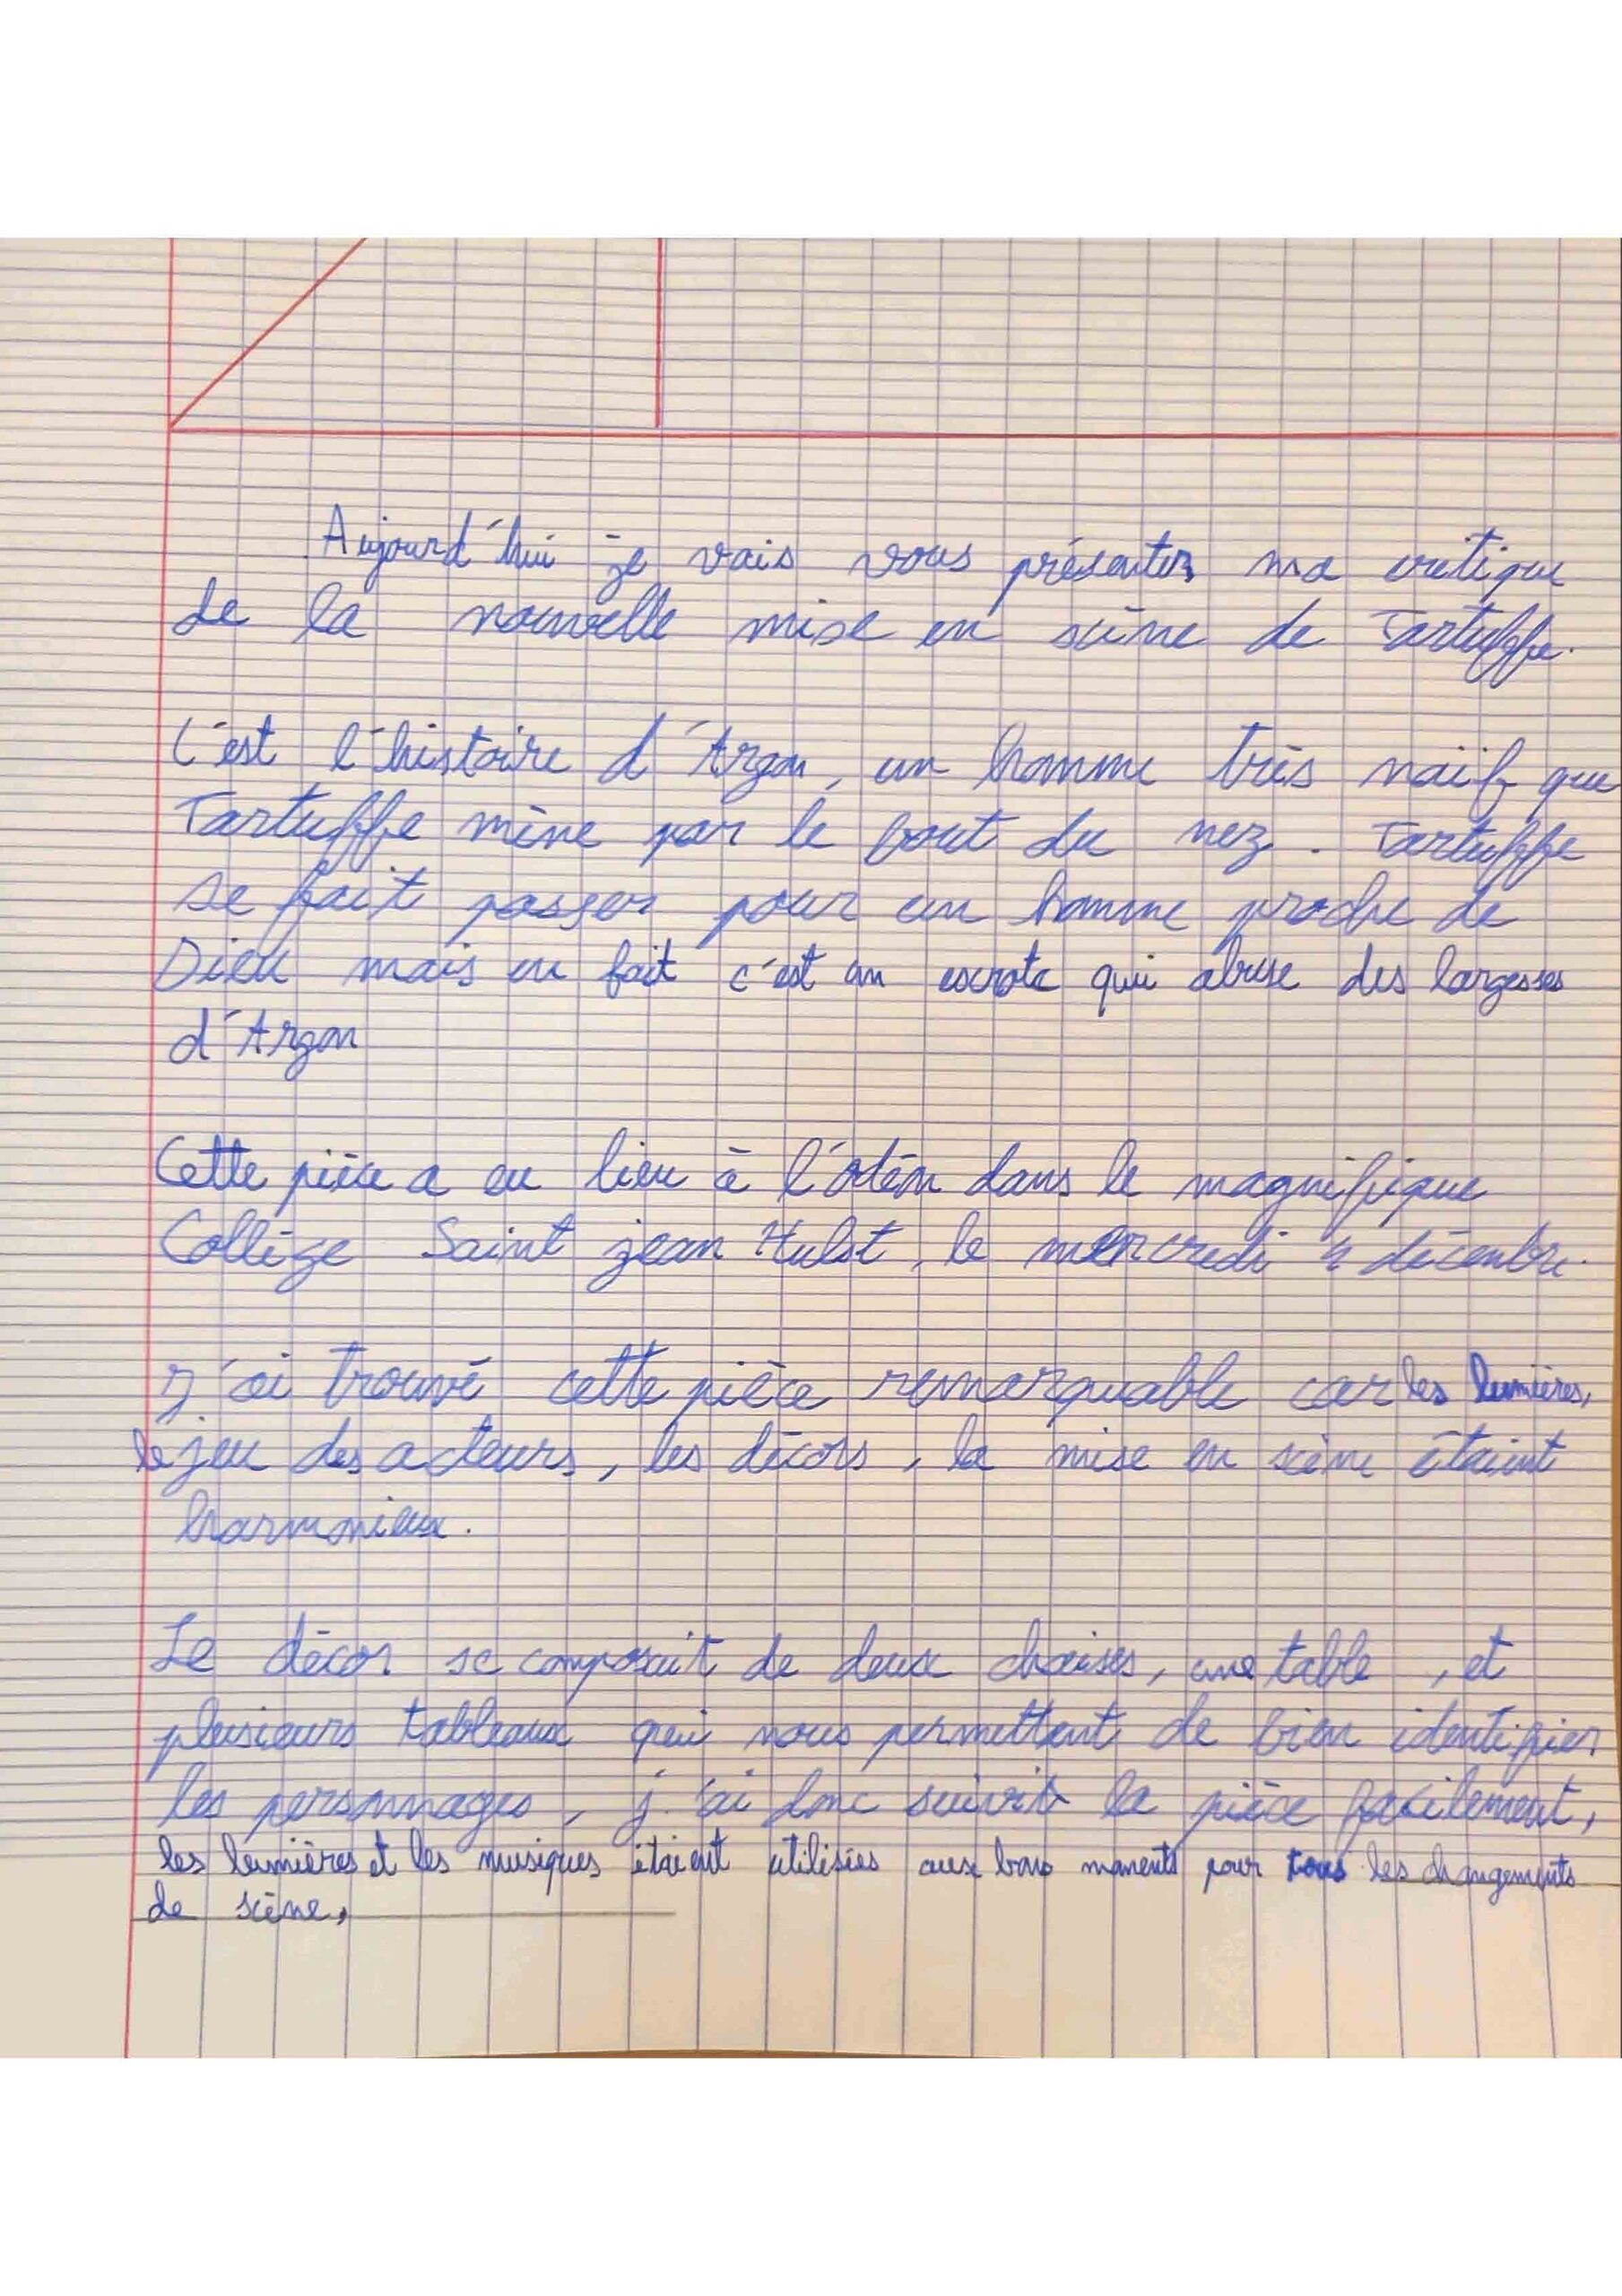 Aujourd'hui je vais vous présenter ma critique
de la nouvelle mise en scène de Tartuffe.
C'est l'histoire d'Argon, un homme très naïf que
Tartuffe mène par le bout du nez. Tartuffe
se fait passer pour un homme proche de
Dieu mais en fait c'est un escroc qui abuse des largesses
d'Argon
Cette pièce a eu lieu à l'odéon dans le magnifique
Collège Saint jean Hulst, le mercredi 4 décembre.
J'ai trouvé cette pièce remarquable car les lumières,
le jeu des acteurs, les décors, la mise en scène étaient
harmonieux.
Le décor se composait de deux chaises, une table, et
plusieurs tableaux qui nous permettent de bien identifier
les personnages, j'ai donc suivit la pièce facilement,
les lumières et les musiques étaient utilisées aux bons moments pour tous les changements
de scène,